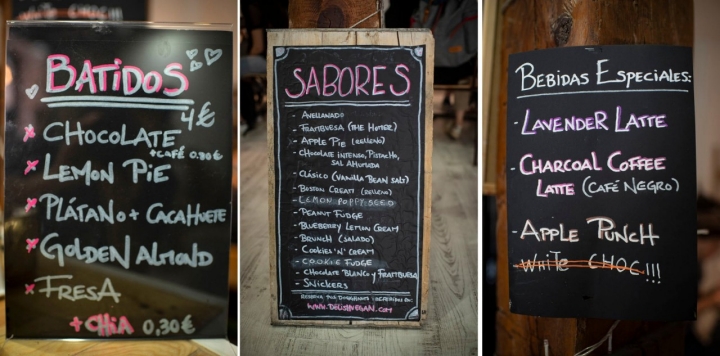 BATIDOS
4€
CHOCOLATE
+CAFÉ 0.80€
LEMON PIE
PLÁTANO + CACAHUETE
GOLDEN ALMOND
FRESA
+CHIA 0,30€
SABORES
- AVELLANADO
- FRAMBUESA (THE HOMER)
- APPLE PIE (RELLENO)
- CHOCOLATE INTENSO, PISTACHO,
SAL AHUMADA
- CLÁSICO (VANILLA BEAN SALT)
- BOSTON CREAM (RELLENO)
- LEMON POPPY SEED
- PEANUT FUDGE
- BLUEBERRY LEMON CREAM
- BRUNCH (SALADO)
- COOKIES 'N' CREAM
- COOKIE FUDGE
- CHOCOLATE BLANCO Y FRAMBUESA
- SNICKERS
RESERVA TUS DOUGHNUTS
WWW.DELISHVEGAN.COM
BEBIDAS ESPECIALES:
- LAVENDER LATTE
- CHARCOAL COFFEE
LATTE (CAFÉ NEGRO)
- APPLE PUNCH
- WHITE CHOC!!!